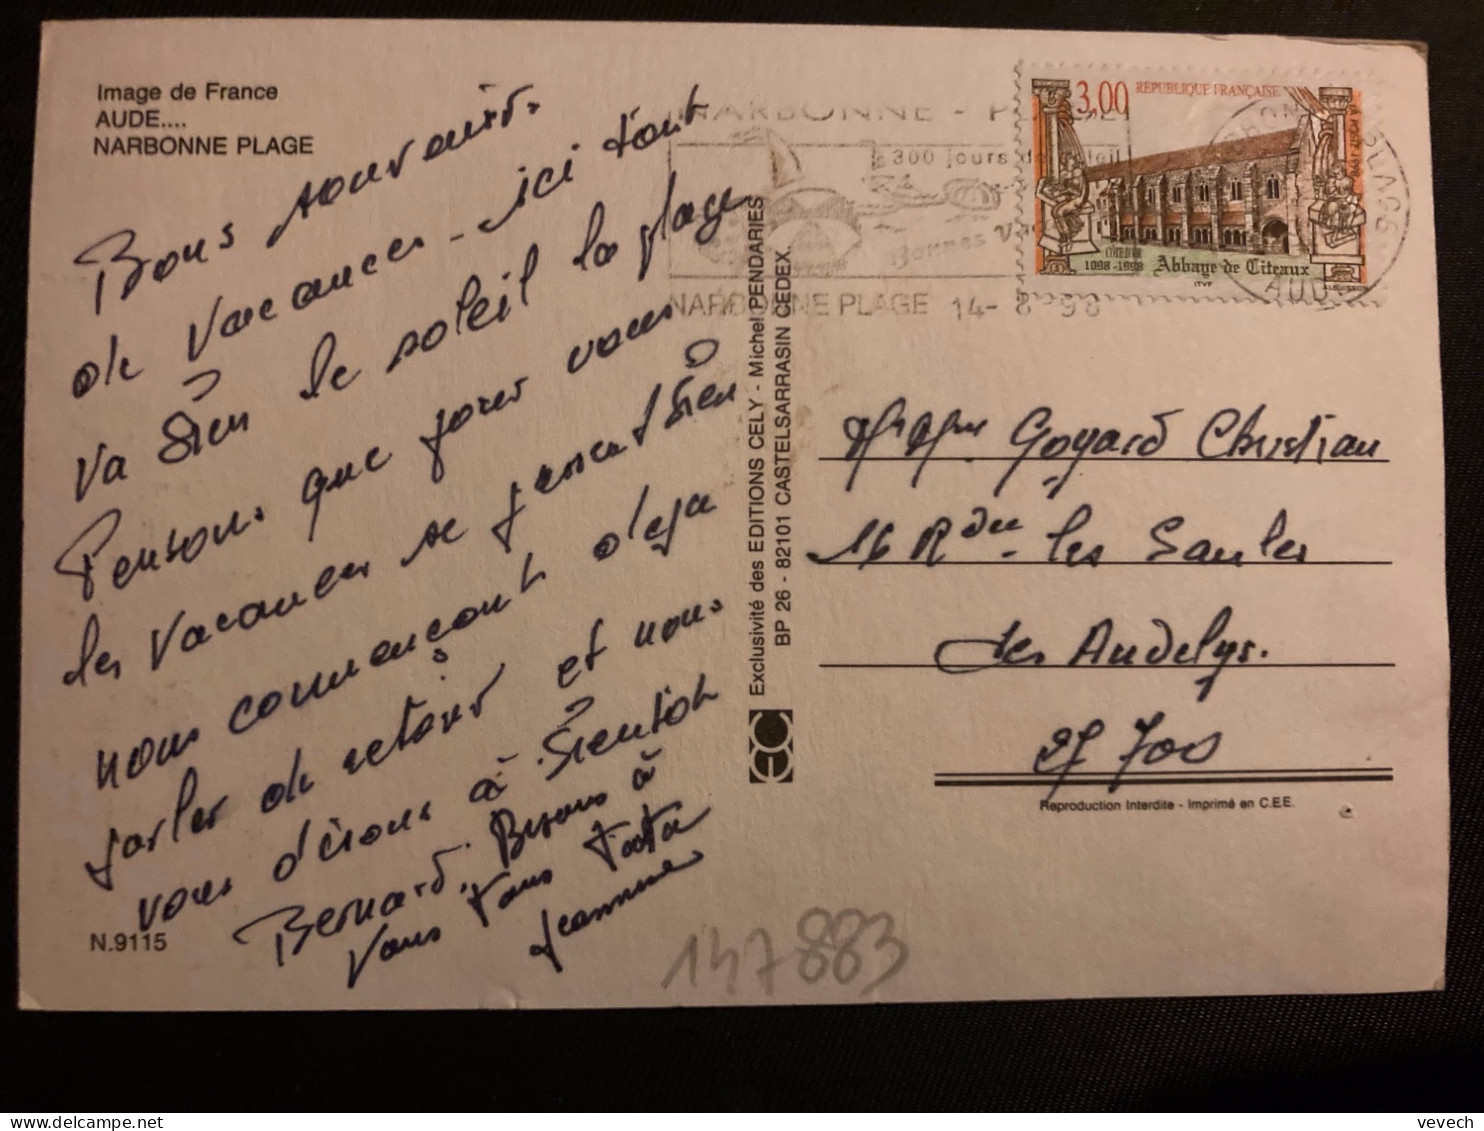 Image de France
AUDE....
NARBONNE PLAGE
Bons souvenirs.
de vacances - ici tout
va bien le soleil la plage
Pensons que pour vous
les vacances se passent bien
nous commençons déjà
parler de retour et nous
vous disons à Bientôt
Bernard. Bisous à
vous tous Tata
Jeannine
N.9115
Exclusivité des EDITIONS CELY - Michel PENDARIES
BP 26 - 82101 CASTELSARRASIN CEDEX
NARBONNE - PLAGE
300 jours de soleil
Bonnes
NARBONNE PLAGE 14-8-98
3,00 RÉPUBLIQUE FRANÇAISE
LA POSTE 1998
CÔTE D'OR
1098-1998 Abbaye de Citeaux
ITVF
NARBONNE PLAGE
AUDE
Goyard Christian
16 R du les Saules
Les Andelys.
27 700
Reproduction Interdite - Imprimé en C.E.E.
147883
vevech